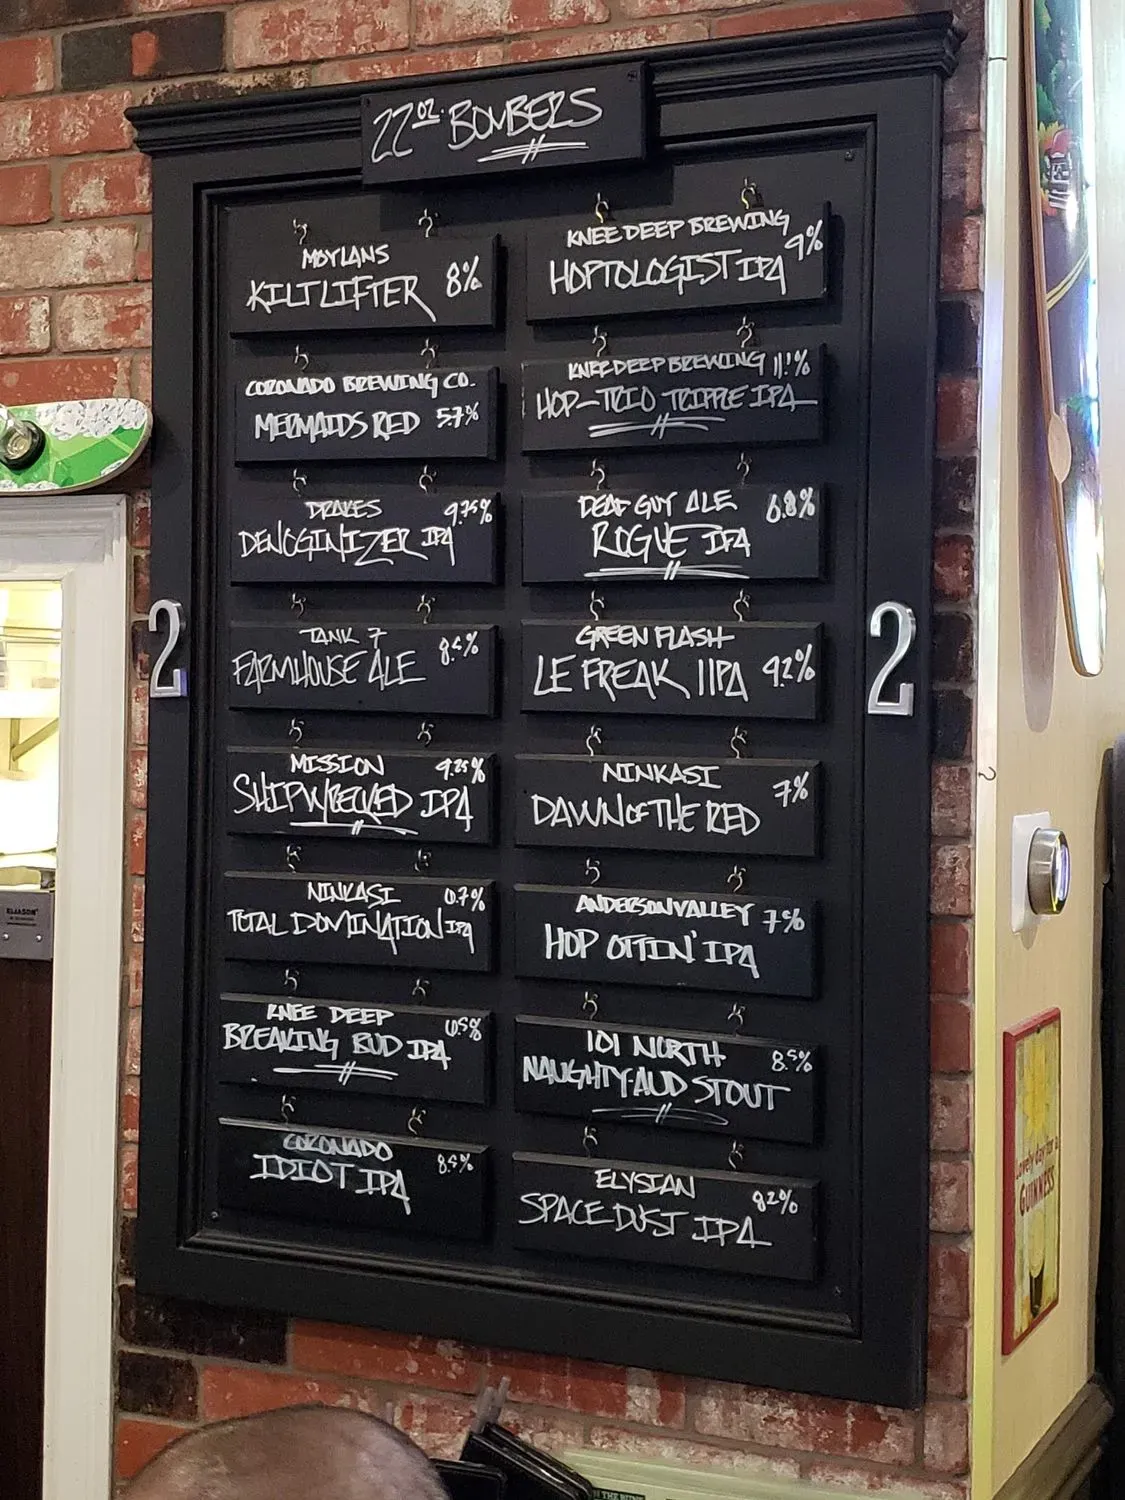 22 OZ. BOMBERS
MOYLANS
KILTLIFTER 8%
CORONADO BREWING CO.
MERMAIDS RED 5.7%
DRAKES 9.75%
DENOGINIZER IPA
TANK 7 8.5%
FARMHOUSE ALE
MISSION 9.25%
SHIPWRECKED IPA
NINKASI 6.7%
TOTAL DOMINATION IPA
KNEE DEEP 6.5%
BREAKING BUD IPA
CORONADO 8.5%
IDIOT IPA
KNEE DEEP BREWING 9%
HOPTOLOGIST IPA
KNEE DEEP BREWING 11.1%
HOP-TRIO TRIPPLE IPA
DEAF GUY ALE 6.8%
ROGUE IPA
GREEN FLASH
LE FREAK IIPA 9.2%
NINKASI 7%
DAWN OF THE RED
ANDERSON VALLEY 7%
HOP OTTIN' IPA
101 NORTH 8.5%
NAUGHTY AUD STOUT
ELYSIAN 8.2%
SPACE DUST IPA
2
2
ELIASON
Lovely day for a
GUINNESS